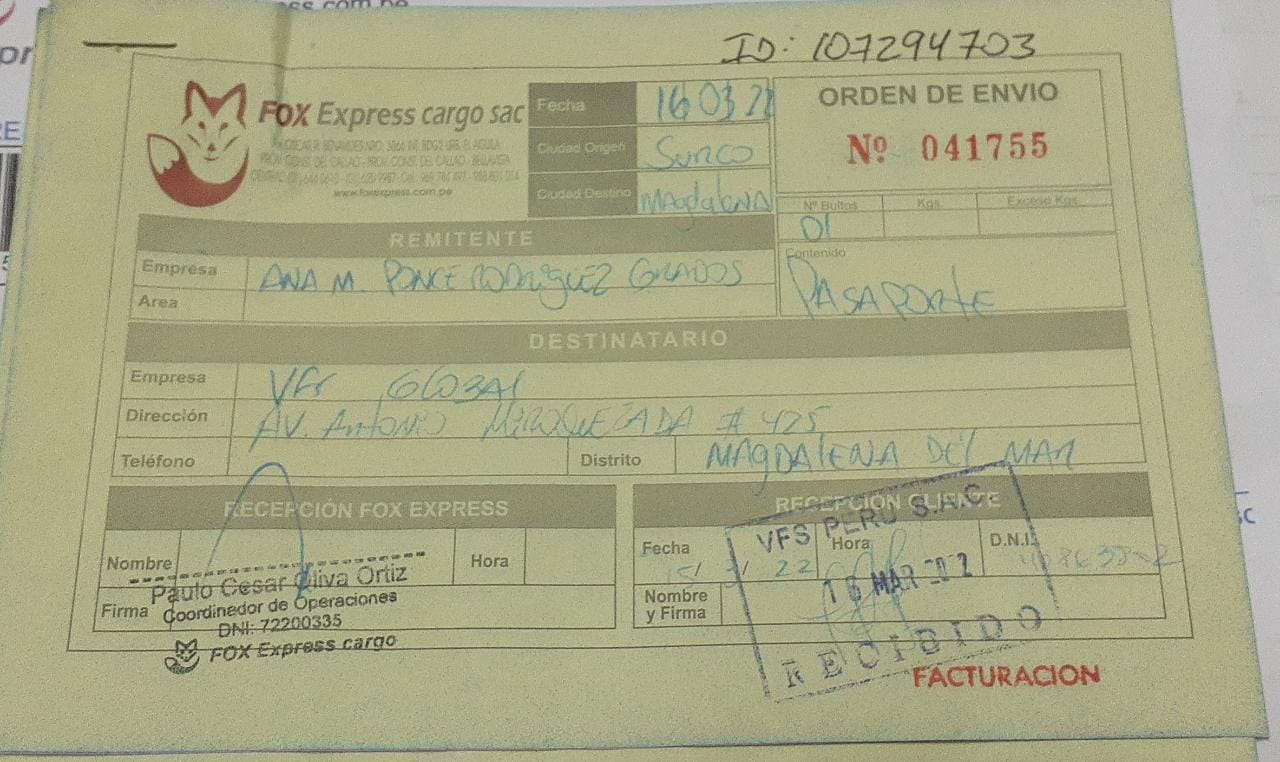 ID: 107294703
FOX Express cargo sac
www.foxexpress.com.pe
Fecha 16 03 22
Ciudad Origen Surco
Ciudad Destino Magdalena
ORDEN DE ENVIO
Nº 041755
Nº Bultos Kgs. Exceso Kgs.
01
Contenido
PASAPORTE
REMITENTE
Empresa ANA M. PONCE RODRIGUEZ GRADOS
Area
DESTINATARIO
Empresa VFS GLOBAL
Dirección AV. ANTONIO MIROQUEZADA # 425
Teléfono Distrito MAGDALENA DEL MAR
RECEPCIÓN FOX EXPRESS
Nombre Hora
Firma
Paulo Cesar Oliva Ortiz
Coordinador de Operaciones
DNI: 72200335
FOX Express cargo
RECEPCIÓN CLIENTE
Fecha Hora D.N.I.
Nombre
y Firma
VFS PERU S.A.C
16 MAR
RECIBIDO
FACTURACION